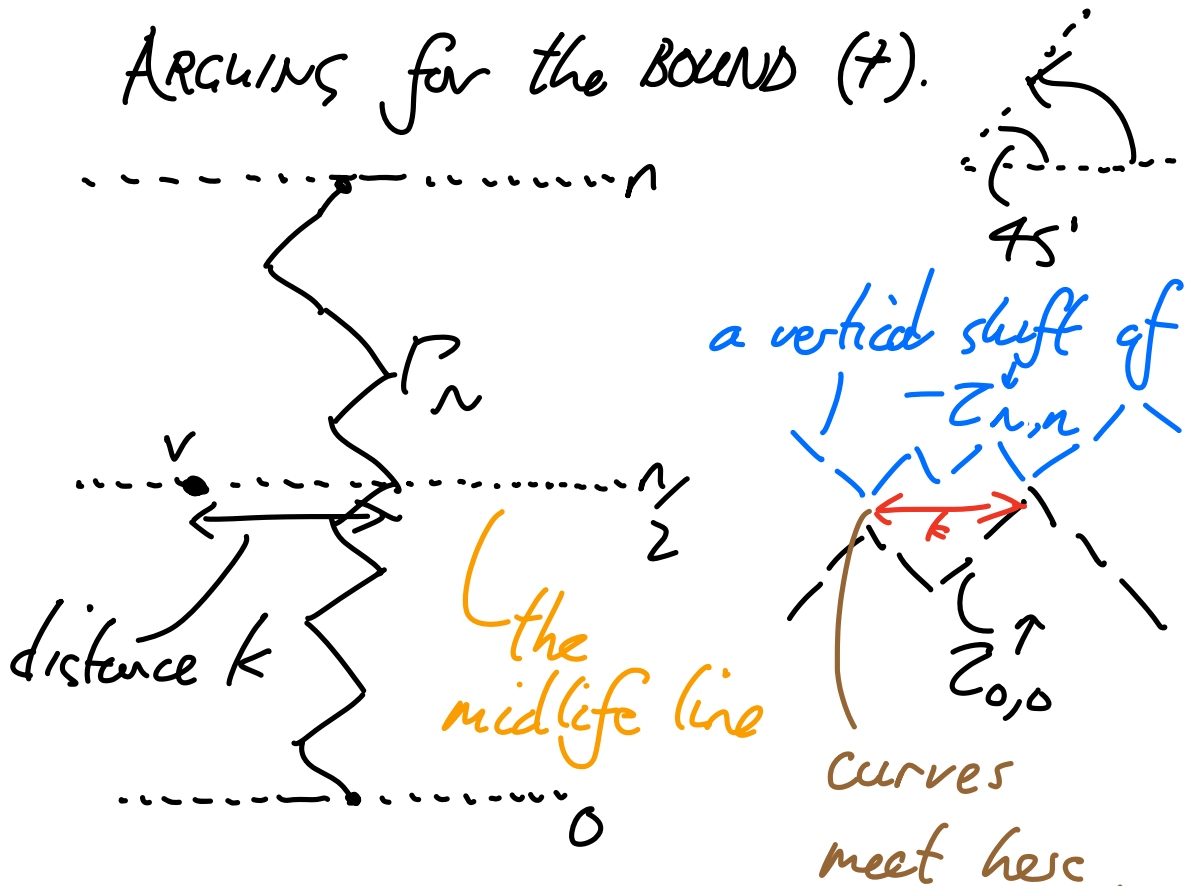 ARGUING for the BOUND (†).
n
45°
a vertical shift of
Γn
-Z↓n,n
v
n/2
k
distance k
the
midlife line
Z↑0,0
0
curves
meet here.